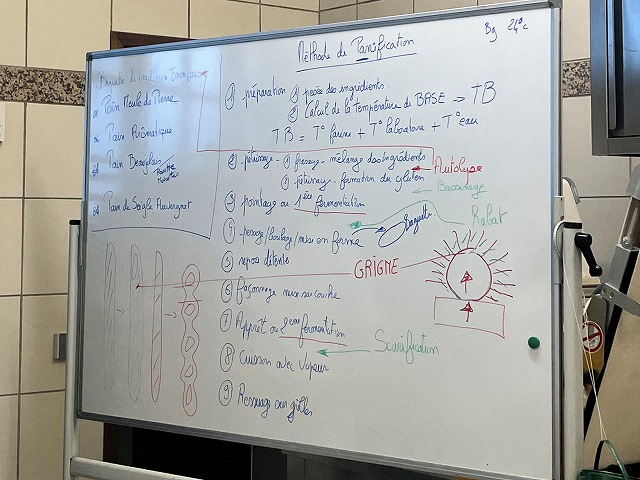 Méthode de Panification
Bg 24°c
Baguette de trad Française
Pain Meule de Pierre
Pain Aromatique
Pain Beaujolais
Pain de Seigle Auvergnat
① préparation ① pesées des ingrédients
② Calcul de la Température de BASE → TB
TB = T° farine + T° laboratoire + T° eau
② pétrissage - ① frasage - mélange des ingrédients
② pétrissage - formation du gluten
Autolyse
Bassinage
③ pointage ou 1ère fermentation
Rabat
④ pesage/boulage/mise en forme
Baguette
⑤ repos détente
GRIGNE
⑥ façonnage mise sur couche
⑦ Apprêt ou 2ème fermentation
⑧ Cuisson avec Vapeur
Scarification
⑨ Ressuage sur grilles